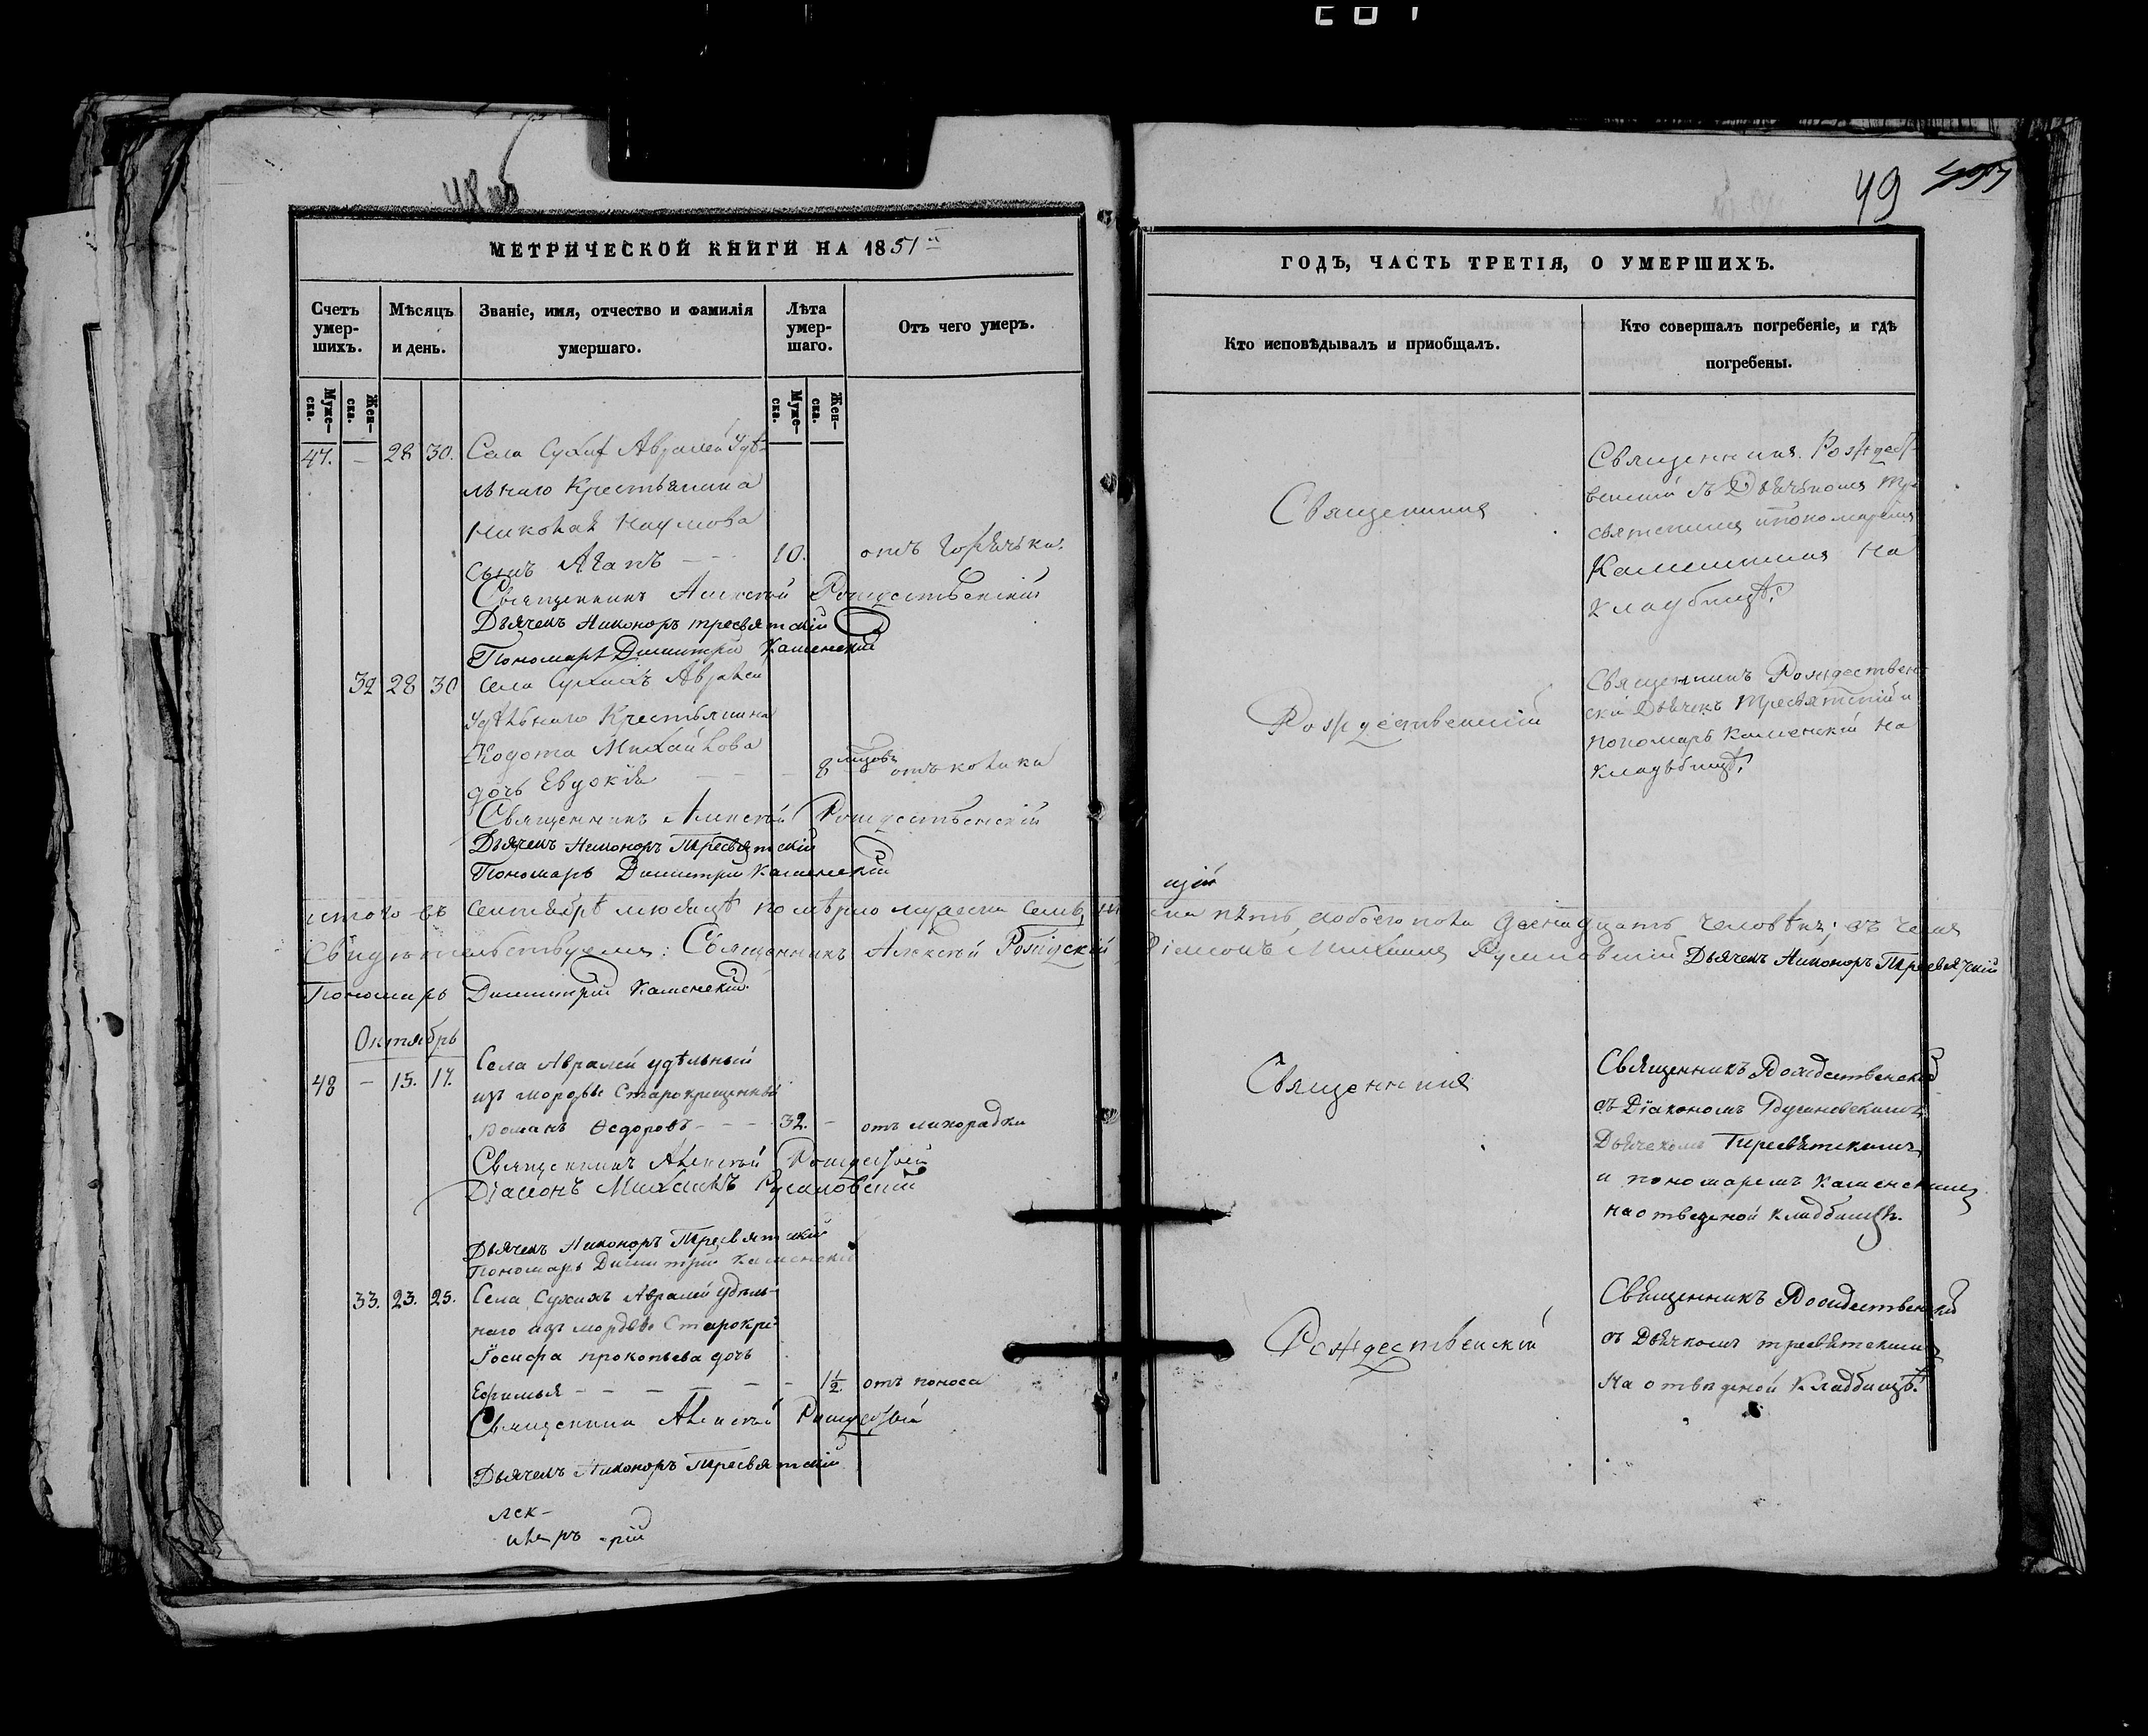 48 об
49
МЕТРИЧЕСКОЙ КНИГИ НА 1851й
ГОДЪ, ЧАСТЬ ТРЕТІЯ, О УМЕРШИХЪ.
Счетъ умер-шихъ.
Мѣсяцъ и день.
Званіе, имя, отчество и фамилія умершаго.
Лѣта умер-шаго.
Отъ чего умеръ.
Кто исповѣдывалъ и пріобщалъ.
Кто совершалъ погребеніе, и гдѣ погребены.
Муже-ска.
Жен-ска.
Муже-ска.
Жен-ска.
47. — 28 30. Села Сухих Авралей Удѣ-
льнаго Крестьянина
Николая Наумова
сынъ Агапъ — 10. отъ горячки.
Священникъ
Священникъ Рождест-
венскій съ Дьячкомъ Тре-
святскимъ и пономаремъ
Каменскимъ на
кладбищѣ.
Священникъ Алексѣй Рождественскій
Дьячекъ Никоноръ Тресвятскій
Пономарь Димитрій Каменскій
32 28 30 Села Сухихъ Авралей
Удѣльнаго Крестьянина
Ѳедота Михайлова
дочь Евдокія — — — 8 мцовъ отъ колики
Рождественскій
Священникъ Рождествен-
скій Дьячекъ Тресвятскій и
пономарь Каменскій на
кладьбищѣ.
Священникъ Алексѣй Рождественскій
Дьячекъ Никоноръ Тресвятскій
Пономарь Димитрій Каменскій
итого въ Сентябрѣ мѣсяцѣ померло мужеска семь, женска пять, обоего пола двенадцать человѣкъ; въ чемъ
Свидѣтельствуемъ: Священникъ Алексѣй Рождескій Діаконъ Михаилъ Румяовскій Дьячекъ Никоноръ Тресвятскій
Пономарь Димитрій Каменскій
Октябрь
48 — 15. 17. Села Авралей удѣльный
изъ мордвы Старокрещенный
Романъ Ѳедоровъ — — — 32. — отъ лихорадки
Священникъ
Священникъ Рождественскій
съ Діакономъ
Дьячкомъ Тресвятскимъ
и пономаремъ Каменскимъ
на отведеной кладбищѣ.
Священникъ Алексѣй
Діаконъ Михаилъ
Дьячекъ Никоноръ Тресвятскій
Пономарь Димитрій Каменскій
33. 23. 25. Села Сухихъ Авралей удѣль-
наго изъ мордвы Старокре
Іосифа Прокопьева дочь
Ефимья — — — — — — 1½. отъ поноса
Рождественскій
Священникъ Рождественскій
съ Дьячкомъ Тресвятскимъ
на отведеной кладбищѣ.
Священникъ Алексѣй
Дьячекъ Никоноръ Тресвятскій